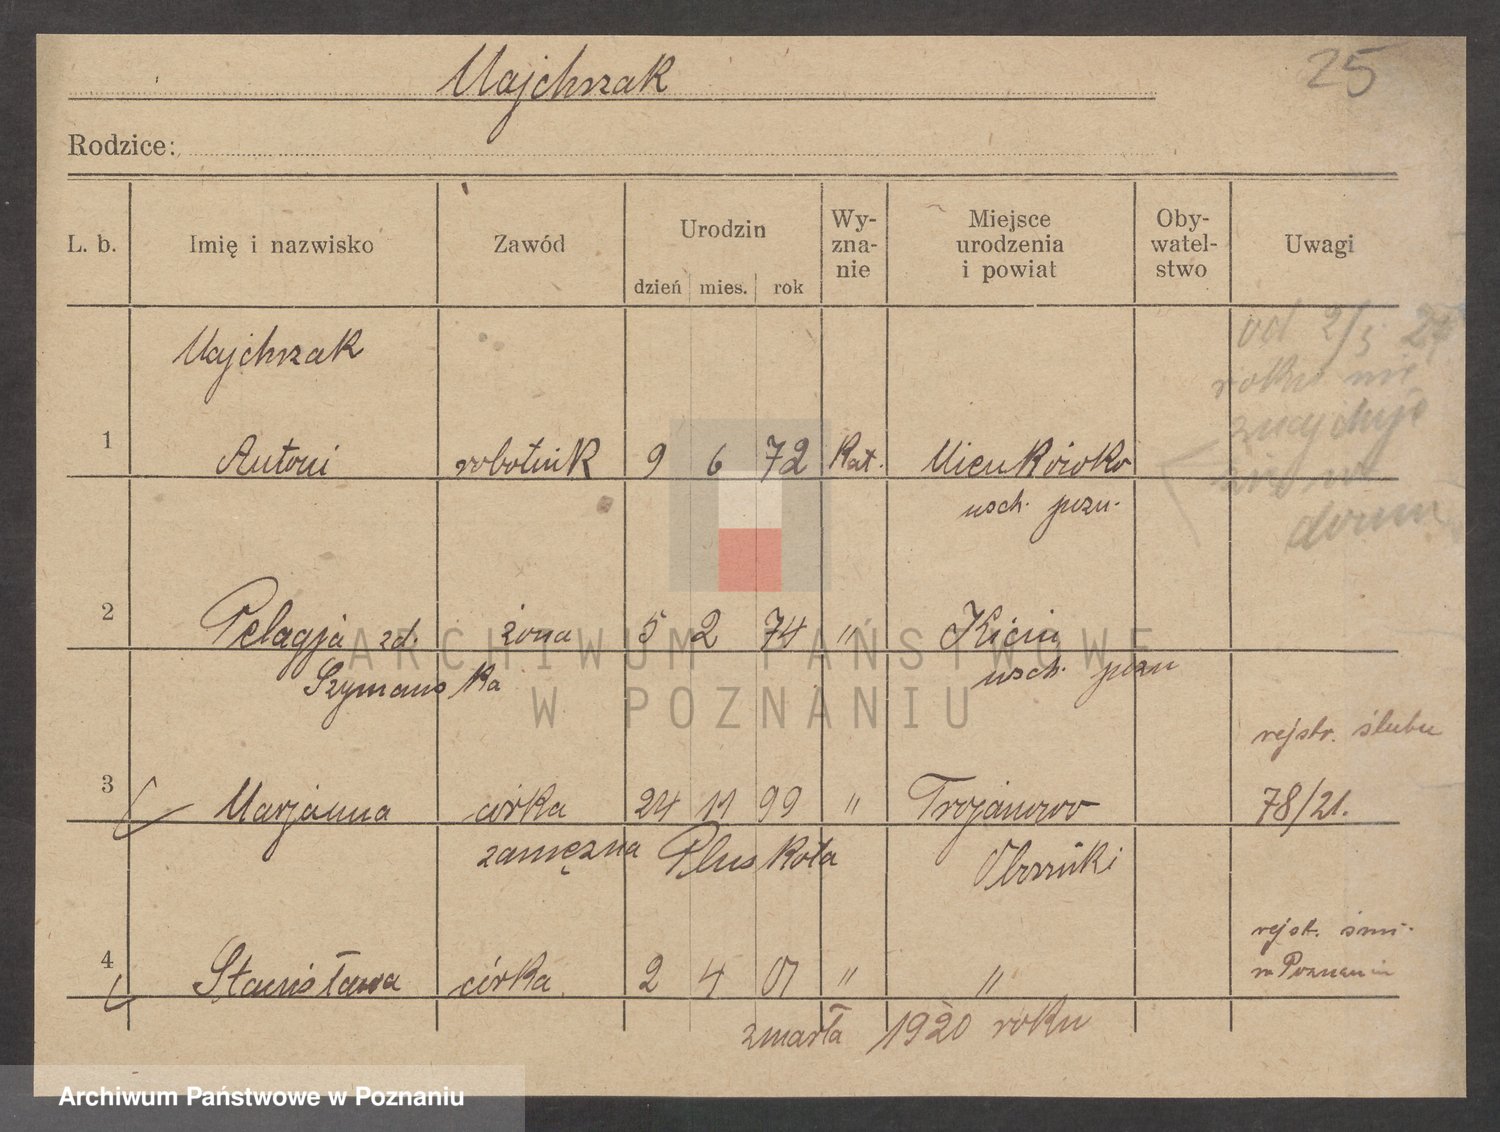 Majchrzak
25
Rodzice:
L. b. Imię i nazwisko Zawód Urodzin dzień mies. rok Wy-zna-nie Miejsce urodzenia i powiat Oby-watel-stwo Uwagi
Majchrzak
od 2/5 27
roku nie
znajduje
się w
domu
1 Antoni robotnik 9 6 72 kat.
wsch. pozn.
2 Pelagja zd. żona 5 2 74 " Kicin
Szymańska wsch. pozn
rejstr. ślubu
3 Marjanna córka 24 11 99 " Trojanowo 78/21.
zamężna Pluskota Oborniki
rejst. śmi-
4 Stanisława córka 2 4 01 " " w Poznaniu
zmarła 1920 roku
ARCHIWUM PAŃSTWOWE
W POZNANIU
Archiwum Państwowe w Poznaniu